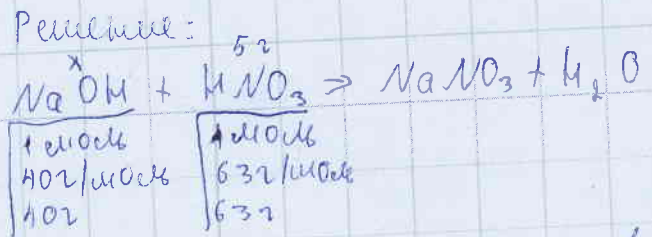 Решение:
x 5 г
NaOH + HNO₃ → NaNO₃ + H₂O
1 моль 1 моль
40 г/моль 63 г/моль
40 г 63 г